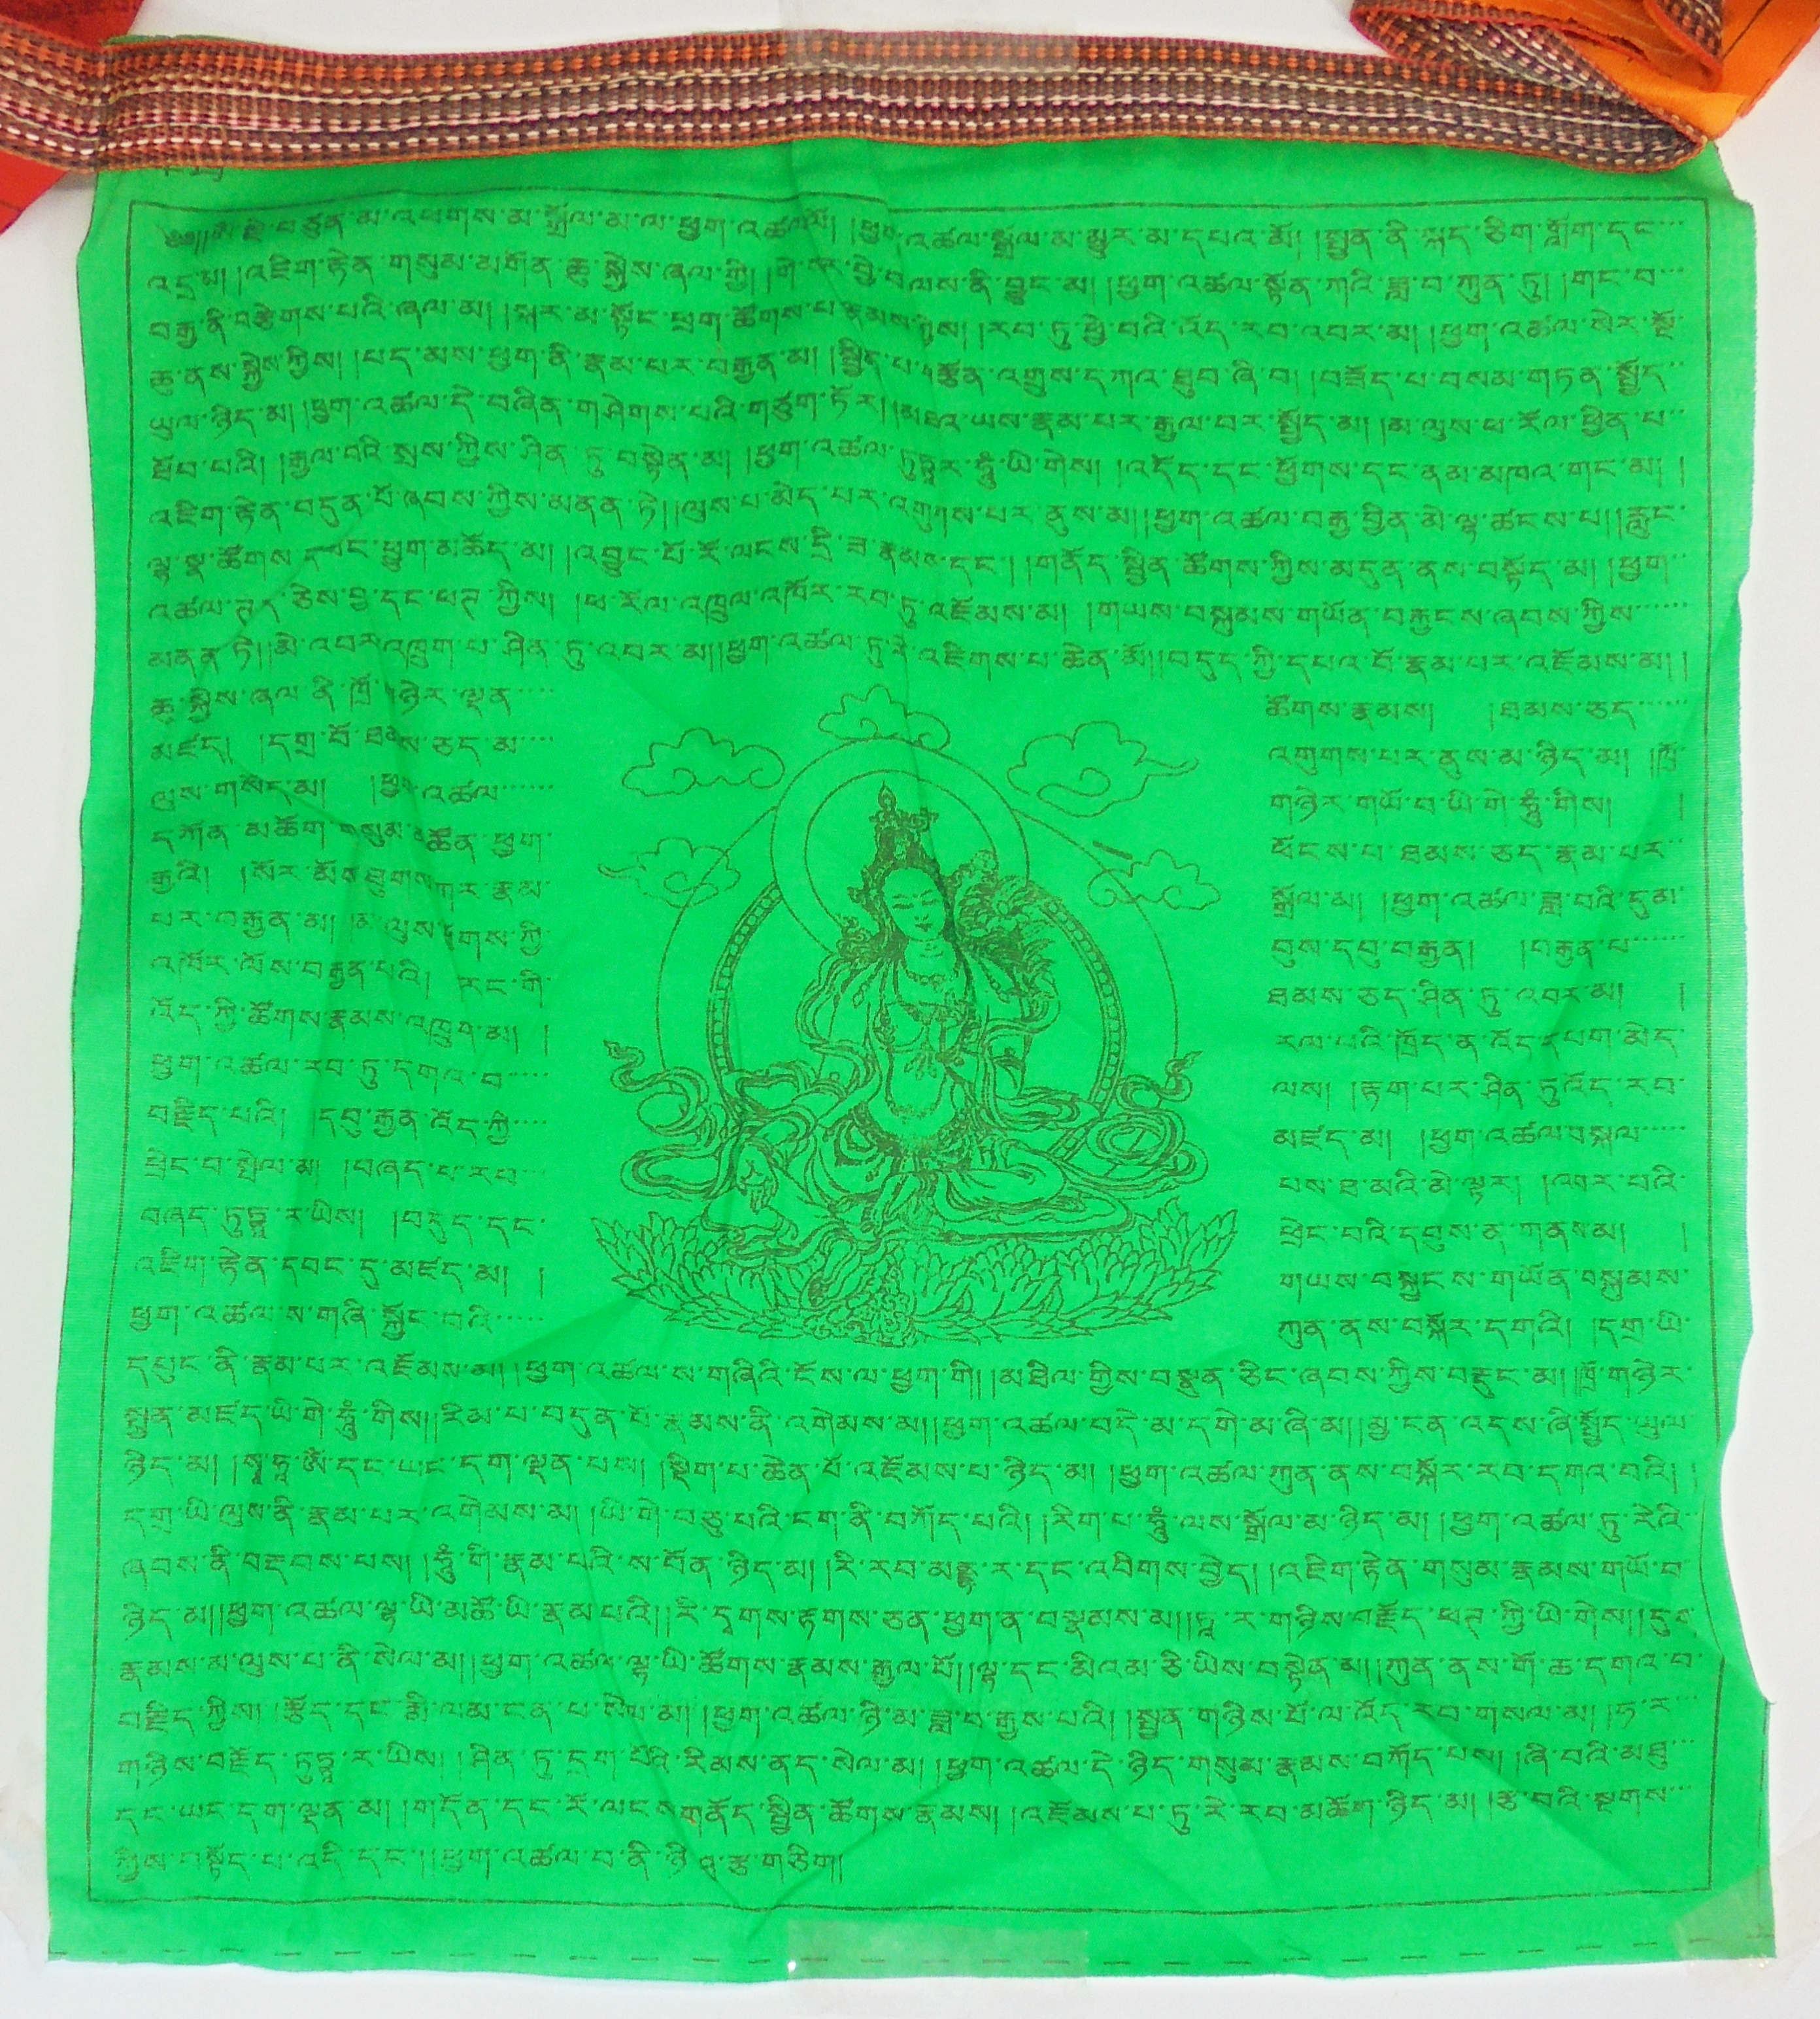 ༄༅།།ཨོཾ་རྗེ་བཙུན་མ་འཕགས་མ་སྒྲོལ་མ་ལ་ཕྱག་འཚལ་ལོ། །ཕྱག་འཚལ་སྒྲོལ་མ་མྱུར་མ་དཔའ་མོ། །སྤྱན་ནི་སྐད་ཅིག་གློག་དང་
འདྲ་མ། །འཇིག་རྟེན་གསུམ་མགོན་ཆུ་སྐྱེས་ཞལ་གྱི། །གེ་སར་བྱེ་བ་ལས་ནི་བྱུང་མ། །ཕྱག་འཚལ་སྟོན་ཀའི་ཟླ་བ་ཀུན་ཏུ། །གང་བ་
བརྒྱ་ནི་བརྩེགས་པའི་ཞལ་མ། །སྐར་མ་སྟོང་ཕྲག་ཚོགས་པ་རྣམས་ཀྱིས། །རབ་ཏུ་ཕྱེ་བའི་འོད་རབ་འབར་མ། །ཕྱག་འཚལ་སེར་སྔོ་
ཆུ་ནས་སྐྱེས་ཀྱིས། །པད་མས་ཕྱག་ནི་རྣམ་པར་བརྒྱན་མ། །སྦྱིན་པ་བརྩོན་འགྲུས་དཀའ་ཐུབ་ཞི་བ། །བཟོད་པ་བསམ་གཏན་སྤྱོད་
ཡུལ་ཉིད་མ། །ཕྱག་འཚལ་དེ་བཞིན་གཤེགས་པའི་གཙུག་ཏོར། །མཐའ་ཡས་རྣམ་པར་རྒྱལ་བར་སྤྱོད་མ། །མ་ལུས་ཕ་རོལ་ཕྱིན་པ་
ཐོབ་པའི། །རྒྱལ་བའི་སྲས་ཀྱིས་ཤིན་ཏུ་བསྟེན་མ། །ཕྱག་འཚལ་ཏུཏྟཱར་ཧཱུྃ་ཡི་གེས། །འདོད་དང་ཕྱོགས་དང་ནམ་མཁའ་གང་མ། །
འཇིག་རྟེན་བདུན་པོ་ཞབས་ཀྱིས་མནན་ཏེ།།ལུས་པ་མེད་པར་འགུགས་པར་ནུས་མ།།ཕྱག་འཚལ་བརྒྱ་བྱིན་མེ་ལྷ་ཚངས་པ།།རླུང་
ལྷ་སྣ་ཚོགས་དབང་ཕྱུག་མཆོད་མ། །འབྱུང་པོ་རོ་ལངས་དྲི་ཟ་རྣམས་དང་། །གནོད་སྦྱིན་ཚོགས་ཀྱིས་མདུན་ནས་བསྟོད་མ། །ཕྱག་
འཚལ་ཏྲད་ཅེས་བྱ་དང་ཕཊ་ཀྱིས། །ཕ་རོལ་འཁྲུལ་འཁོར་རབ་ཏུ་འཇོམས་མ། །གཡས་བསྐུམས་གཡོན་བརྐྱངས་ཞབས་ཀྱིས་
མནན་ཏེ།།མེ་འབར་འཁྲུག་པ་ཤིན་ཏུ་འབར་མ།།ཕྱག་འཚལ་ཏུ་རེ་འཇིགས་པ་ཆེན་མོ།།བདུད་ཀྱི་དཔའ་བོ་རྣམ་པར་འཇོམས་མ། །
ཆུ་སྐྱེས་ཞལ་ནི་ཁྲོ་གཉེར་ལྡན་
མཛད། །དགྲ་བོ་ཐམས་ཅད་མ་
ལུས་གསོད་མ། །ཕྱག་འཚལ་
དཀོན་མཆོག་གསུམ་མཚོན་ཕྱག་
རྒྱའི། །སོར་མོས་ཐུགས་ཀར་རྣམ་
པར་བརྒྱན་མ། །མ་ལུས་ཕྱོགས་ཀྱི་
འཁོར་ལོས་བརྒྱན་པའི། །རང་གི་
འོད་ཀྱི་ཚོགས་རྣམས་འཁྲུག་མ། །
ཕྱག་འཚལ་རབ་ཏུ་དགའ་བ་
བརྗིད་པའི། །དབུ་རྒྱན་འོད་ཀྱི་
ཕྲེང་བ་སྤེལ་མ། །བཞད་པ་རབ་
བཞད་ཏུཏྟཱ་ར་ཡིས། །བདུད་དང་
འཇིག་རྟེན་དབང་དུ་མཛད་མ། །
ཕྱག་འཚལ་ས་གཞི་སྐྱོང་བའི་
ཚོགས་རྣམས། །ཐམས་ཅད་
འགུགས་པར་ནུས་མ་ཉིད་མ། །ཁྲོ་
གཉེར་གཡོ་བ་ཡི་གེ་ཧཱུྃ་གིས། །
ཕོངས་པ་ཐམས་ཅད་རྣམ་པར་
སྒྲོལ་མ། །ཕྱག་འཚལ་ཟླ་བའི་དུམ་
བུས་དབུ་བརྒྱན། །བརྒྱན་པ་
ཐམས་ཅད་ཤིན་ཏུ་འབར་མ། །
རལ་པའི་ཁྲོད་ན་འོད་དཔག་མེད་
ལས། །རྟག་པར་ཤིན་ཏུ་འོད་རབ་
མཛད་མ། །ཕྱག་འཚལ་བསྐལ་
པས་ཐ་མའི་མེ་ལྟར། །འབར་པའི་
ཕྲེང་བའི་དབུས་ན་གནས་མ། །
གཡས་བསྐྱངས་གཡོན་བསྐུམས་
ཀུན་ནས་བསྐོར་དགའི། །དགྲ་ཡི་
དཔུང་ནི་རྣམ་པར་འཇོམས་མ། །ཕྱག་འཚལ་ས་གཞིའི་ངོས་ལ་ཕྱག་གི། །མཐིལ་གྱིས་བསྣུན་ཅིང་ཞབས་ཀྱིས་བརྡུང་མ། །ཁྲོ་གཉེར་
སྤྱན་མཛད་ཡི་གེ་ཧཱུྃ་གིས།།རིམ་པ་བདུན་པོ་རྣམས་ནི་འགེམས་མ།།ཕྱག་འཚལ་བདེ་མ་དགེ་མ་ཞི་མ།།མྱ་ངན་འདས་ཞི་སྤྱོད་ཡུལ་
ཉིད་མ། །སྭཱ་ཧཱ་ཨོཾ་དང་ཡང་དག་ལྡན་པས། །སྡིག་པ་ཆེན་པོ་འཇོམས་པ་ཉིད་མ། །ཕྱག་འཚལ་ཀུན་ནས་བསྐོར་རབ་དགའ་བའི། །
དགྲ་ཡི་ལུས་ནི་རྣམ་པར་འགེམས་མ། །ཡི་གེ་བཅུ་པའི་ངག་ནི་བཀོད་པའི། །རིག་པ་ཧཱུྃ་ལས་སྒྲོལ་མ་ཉིད་མ། །ཕྱག་འཚལ་ཏུ་རེའི་
ཞབས་ནི་བརྡབས་པས། །ཧཱུྃ་གི་རྣམ་པའི་ས་བོན་ཉིད་མ། །རི་རབ་མནྡཱ་ར་དང་འབིགས་བྱེད། །འཇིག་རྟེན་གསུམ་རྣམས་གཡོ་བ་
ཉིད་མ།།ཕྱག་འཚལ་ལྷ་ཡི་མཚོ་ཡི་རྣམ་པའི།།རི་དྭགས་རྟགས་ཅན་ཕྱག་ན་བསྣམས་མ།།ཏཱ་ར་གཉིས་བརྗོད་ཕཊ་ཀྱི་ཡི་གེས།།དུག་
རྣམས་མ་ལུས་པ་ནི་སེལ་མ།།ཕྱག་འཚལ་ལྷ་ཡི་ཚོགས་རྣམས་རྒྱལ་པོ།།ལྷ་དང་མིའམ་ཅི་ཡིས་བསྟེན་མ།།ཀུན་ནས་གོ་ཆ་དགའ་བ་
བརྗིད་ཀྱིས། །རྩོད་དང་རྨི་ལམ་ངན་པ་སེལ་མ། །ཕྱག་འཚལ་ཉི་མ་ཟླ་བ་རྒྱས་པའི། །སྤྱན་གཉིས་པོ་ལ་འོད་རབ་གསལ་མ། །ཧ་ར་
གཉིས་བརྗོད་ཏུཏྟཱ་ར་ཡིས། །ཤིན་ཏུ་དྲག་པོའི་རིམས་ནད་སེལ་མ། །ཕྱག་འཚལ་དེ་ཉིད་གསུམ་རྣམས་བཀོད་པས། །ཞི་བའི་མཐུ་
དང་ཡང་དག་ལྡན་མ། །གདོན་དང་རོ་ལངས་གནོད་སྦྱིན་ཚོགས་རྣམས། །འཇོམས་པ་ཏུ་རེ་རབ་མཆོག་ཉིད་མ། །རྩ་བའི་སྔགས་
ཀྱིས་བསྟོད་པ་འདི་དང་། །ཕྱག་འཚལ་བ་ནི་ཉི་ཤུ་རྩ་གཅིག།